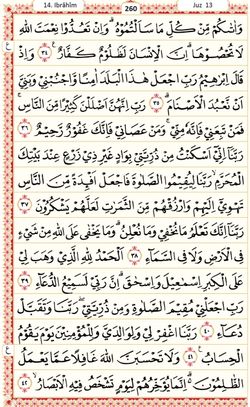 14. Ibrâhîm 260 Juz 13
وَاٰتٰىكُمْ مِّنْ كُلِّ مَا سَاَلْتُمُوْهُ ۗ وَاِنْ تَعُدُّوْا نِعْمَتَ اللّٰهِ
لَا تُحْصُوْهَا ۗ اِنَّ الْاِنْسَانَ لَظَلُوْمٌ كَفَّارٌ ٣٤ وَاِذْ
قَالَ اِبْرٰهِيْمُ رَبِّ اجْعَلْ هٰذَا الْبَلَدَ اٰمِنًا وَّاجْنُبْنِيْ وَبَنِيَّ
اَنْ نَّعْبُدَ الْاَصْنَامَ ٣٥ رَبِّ اِنَّهُنَّ اَضْلَلْنَ كَثِيْرًا مِّنَ النَّاسِ ۚ
فَمَنْ تَبِعَنِيْ فَاِنَّهٗ مِنِّيْ ۚ وَمَنْ عَصَانِيْ فَاِنَّكَ غَفُوْرٌ رَّحِيْمٌ ٣٦
رَبَّنَآ اِنِّيْٓ اَسْكَنْتُ مِنْ ذُرِّيَّتِيْ بِوَادٍ غَيْرِ ذِيْ زَرْعٍ عِنْدَ بَيْتِكَ
الْمُحَرَّمِ ۙ رَبَّنَا لِيُقِيْمُوا الصَّلٰوةَ فَاجْعَلْ اَفْـِٕدَةً مِّنَ النَّاسِ
تَهْوِيْٓ اِلَيْهِمْ وَارْزُقْهُمْ مِّنَ الثَّمَرٰتِ لَعَلَّهُمْ يَشْكُرُوْنَ ٣٧
رَبَّنَآ اِنَّكَ تَعْلَمُ مَا نُخْفِيْ وَمَا نُعْلِنُ ۗ وَمَا يَخْفٰى عَلَى اللّٰهِ مِنْ شَيْءٍ
فِى الْاَرْضِ وَلَا فِى السَّمَآءِ ٣٨ اَلْحَمْدُ لِلّٰهِ الَّذِيْ وَهَبَ لِيْ
عَلَى الْكِبَرِ اِسْمٰعِيْلَ وَاِسْحٰقَ ۗ اِنَّ رَبِّيْ لَسَمِيْعُ الدُّعَآءِ ٣٩
رَبِّ اجْعَلْنِيْ مُقِيْمَ الصَّلٰوةِ وَمِنْ ذُرِّيَّتِيْ ۖ رَبَّنَا وَتَقَبَّلْ
دُعَآءِ ٤٠ رَبَّنَا اغْفِرْ لِيْ وَلِوَالِدَيَّ وَلِلْمُؤْمِنِيْنَ يَوْمَ يَقُوْمُ
الْحِسَابُ ٤١ وَلَا تَحْسَبَنَّ اللّٰهَ غَافِلًا عَمَّا يَعْمَلُ
الظّٰلِمُوْنَ ۗ اِنَّمَا يُؤَخِّرُهُمْ لِيَوْمٍ تَشْخَصُ فِيْهِ الْاَبْصَارُ ٤٢